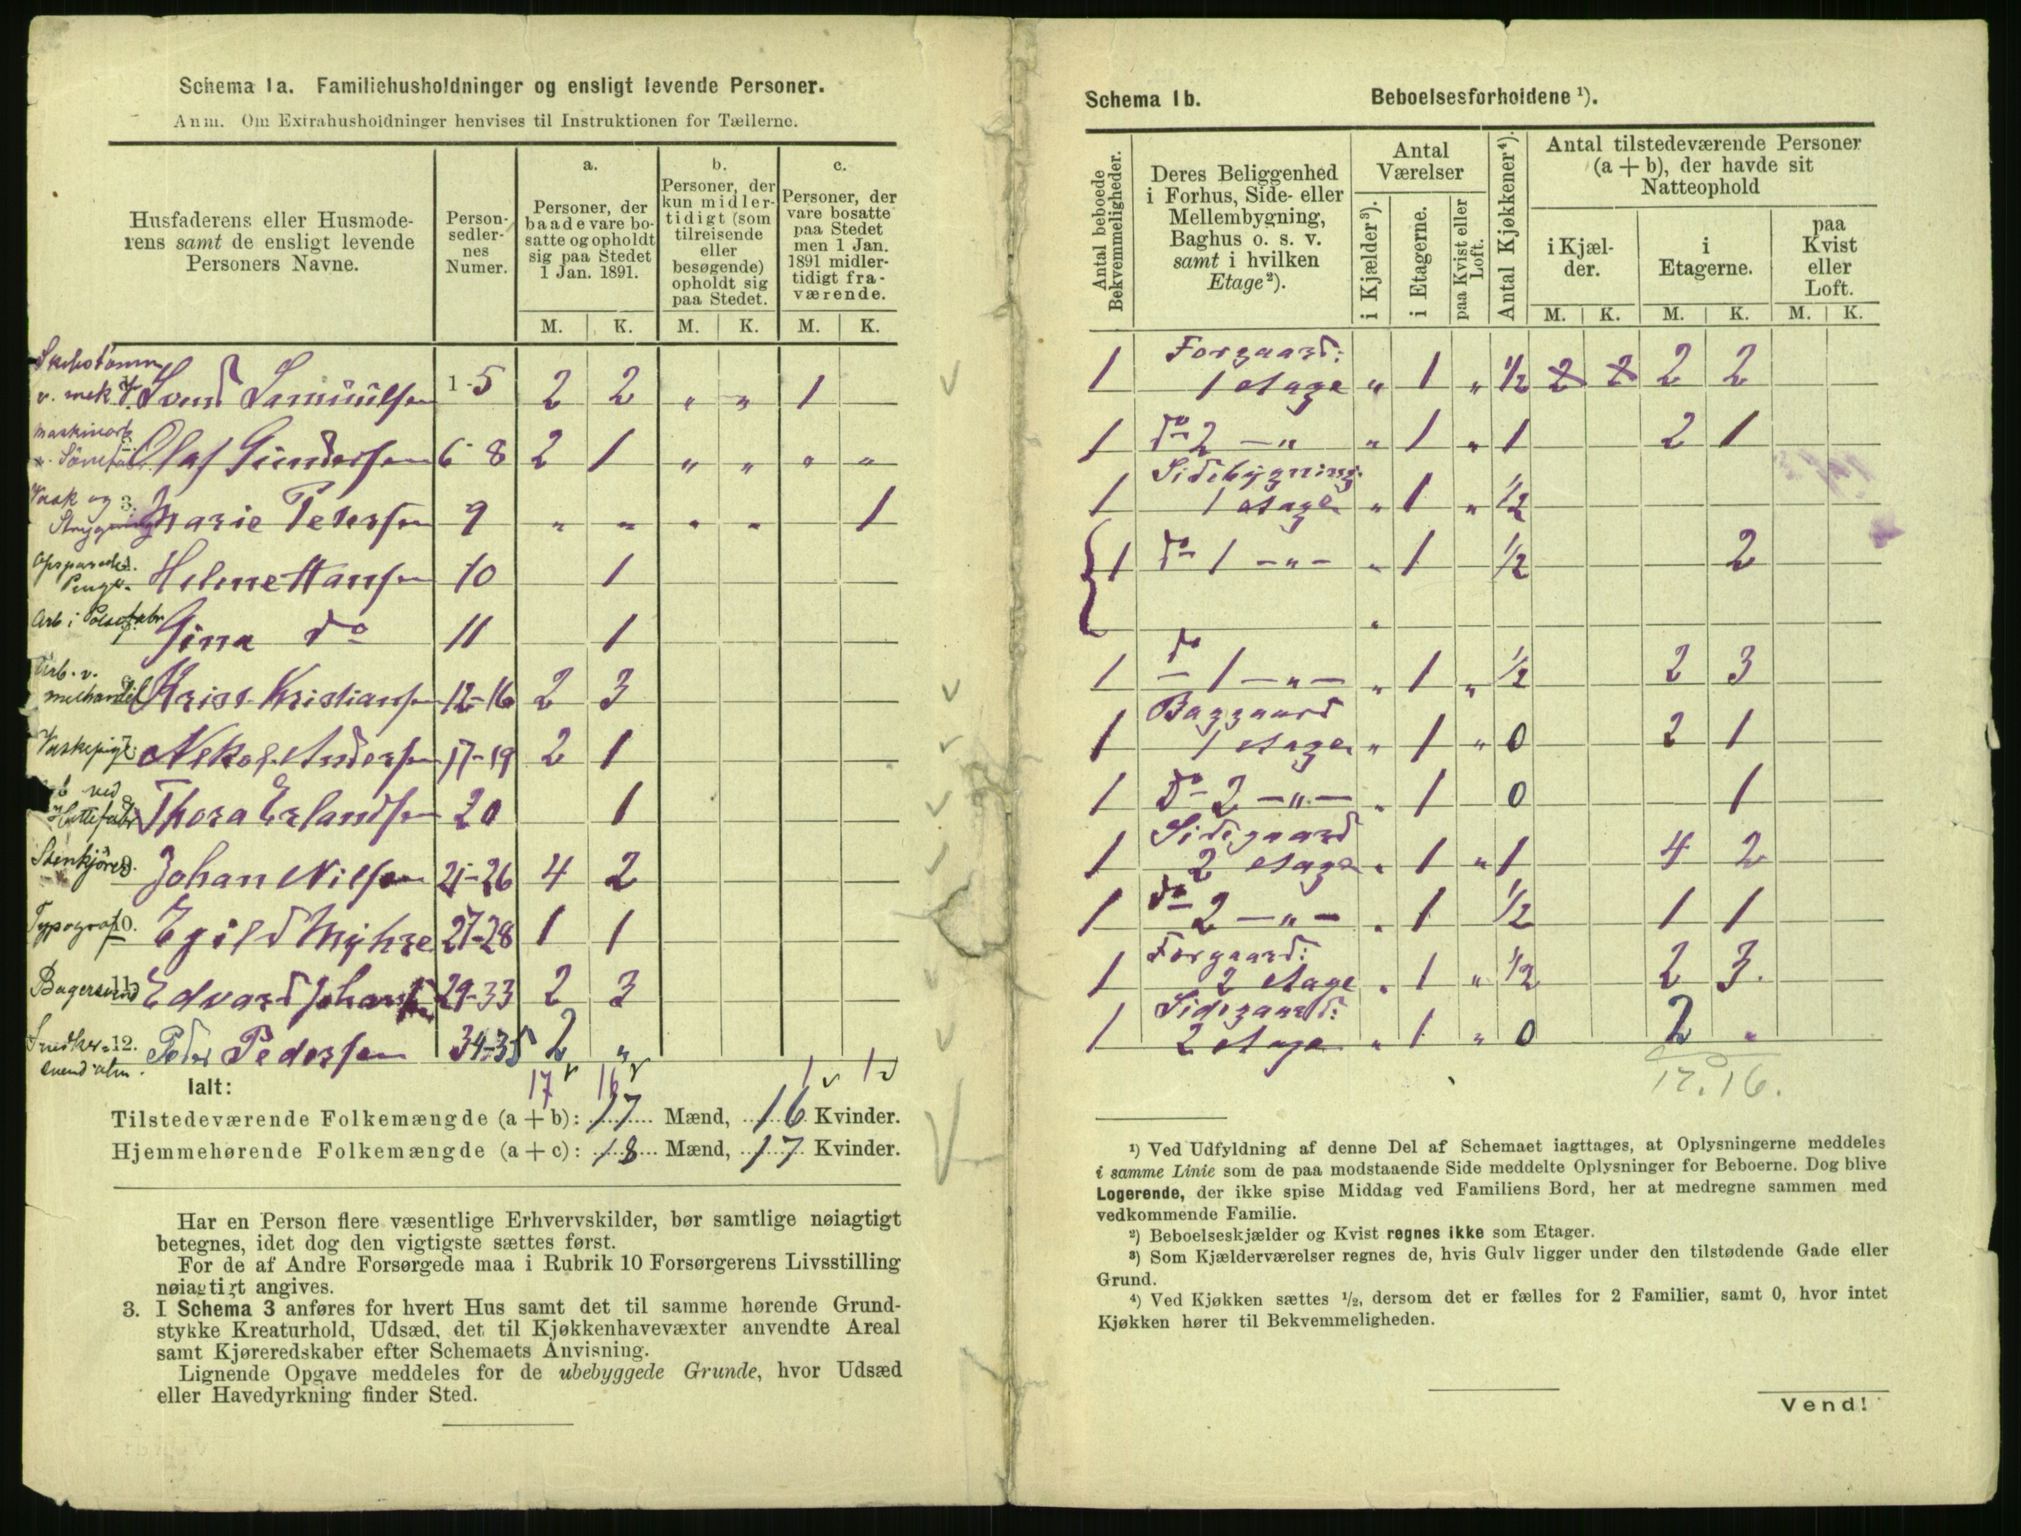 Schema 1a. Familiehusholdninger og ensligt levende Personer.
Anm. Om Extrahusholdninger henvises til Instruktionen for Tællerne.
Husfaderens eller Husmoderens samt de ensligt levende Personers Navne.
Personsedlernes Numer.
a.
Personer, der baade vare bosatte og opholdt sig paa Stedet 1 Jan. 1891.
b.
Personer, der kun midlertidigt (som tilreisende eller besøgende) opholdt sig paa Stedet.
c.
Personer, der vare bosatte paa Stedet men 1 Jan. 1891 midlertidigt fraværende.
M. K. M. K. M. K.
v. mek Svend Samuelsen 1-5 2 2 „ „ 1
Maskinarb. Olaf Gundersen 6-8 2 1 „ „ „ „
Vask og Strygning 3. Marie Petersen 9 „ „ „ „ 1
Opsparede Penge Helene Hansen 10 1
Arb i Pølsefabr Gina do 11 1
Arb. v. melhandel Krist. Kristiansen 12-16 2 3
Vaskepige Andersen 17-19 2 1
ved Thora Erlandsen 20 1
Stenkjører 9. Johan Nilsen 21-26 4 2
Typograf 10. Egild Myhre 27-28 1 1
Bagersvend 11. Edvard Johansen 29-33 2 3
Snedker- 12. svend alm. Peder Pedersen 34-35 2 „
Ialt: 17 16 1 1
Tilstedeværende Folkemængde (a + b): 17 Mænd, 16 Kvinder.
Hjemmehørende Folkemængde (a + c): 18 Mænd, 17 Kvinder.
Har en Person flere væsentlige Erhvervskilder, bør samtlige nøiagtigt
betegnes, idet dog den vigtigste sættes først.
For de af Andre Forsørgede maa i Rubrik 10 Forsørgerens Livsstilling
nøiagtigt angives.
3. I Schema 3 anføres for hvert Hus samt det til samme hørende Grund-
stykke Kreaturhold, Udsæd, det til Kjøkkenhavevæxter anvendte Areal
samt Kjøreredskaber efter Schemaets Anvisning.
Lignende Opgave meddeles for de ubebyggede Grunde, hvor Udsæd
eller Havedyrkning finder Sted.
Schema 1b. Beboelsesforholdene ¹).
Antal beboede Bekvemmeligheder.
Deres Beliggenhed i Forhus, Side- eller Mellembygning, Baghus o. s. v. samt i hvilken Etage ²).
Antal Værelser
i Kjælder ³).
i Etagerne.
paa Kvist eller Loft.
Antal Kjøkkener ⁴).
Antal tilstedeværende Personer (a + b), der havde sit Natteophold
i Kjælder.
i Etagerne.
paa Kvist eller Loft.
M. K. M. K. M. K.
1 Forgaard: 1 etage „ 1 „ 1/2 2 2 2 2
1 do 2 — „ „ 1 „ 1 2 1
1 Sidebygning. 1 etage „ 1 „ 1/2
1 do 1 — „ — „ 1 1/2 2
„
1 do 1 — „ — „ 1 „ 1/2 2 3
1 Baggaard 1 etage „ 1 „ 0 2 1
1 do 2 — „ — „ 1 0 1
1 Sidegaard 2 etage „ 1 „ 1 4 2
1 do 2 — „ — „ 1 1/2 1 1
1 Forgaard: 2 etage „ 1 „ 1/2 2 3
1 Sidegaard: 2 etage „ 1 „ 0 2 „
17. 16.
¹) Ved Udfyldning af denne Del af Schemaet iagttages, at Oplysningerne meddeles
i samme Linie som de paa modstaaende Side meddelte Oplysninger for Beboerne. Dog blive
Logerende, der ikke spise Middag ved Familiens Bord, her at medregne sammen med
vedkommende Familie.
²) Beboelseskjælder og Kvist regnes ikke som Etager.
³) Som Kjælderværelser regnes de, hvis Gulv ligger under den tilstødende Gade eller
Grund.
⁴) Ved Kjøkken sættes ¹/₂, dersom det er fælles for 2 Familier, samt 0, hvor intet
Kjøkken hører til Bekvemmeligheden.
Vend!